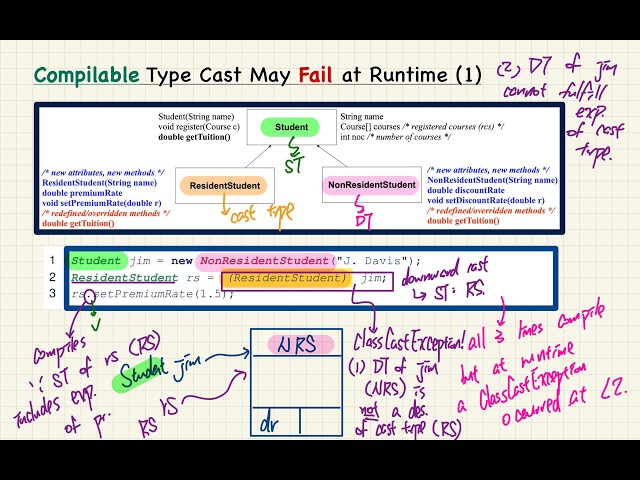 Compilable Type Cast May Fail at Runtime (1)
(2) DT of jim
cannot fulfill
exp.
of cast
type.
Student(String name)
void register(Course c)
double getTuition()
Student
String name
Course[] courses /* registered courses (rcs) */
int noc /* number of courses */
ST
/* new attributes, new methods */
ResidentStudent(String name)
double premiumRate
void setPremiumRate(double r)
/* redefined/overridden methods */
double getTuition()
ResidentStudent
cast type
NonResidentStudent
DT
/* new attributes, new methods */
NonResidentStudent(String name)
double discountRate
void setDiscountRate(double r)
/* redefined/overridden methods */
double getTuition()
1 Student jim = new NonResidentStudent("J. Davis");
2 ResidentStudent rs = (ResidentStudent) jim;
3 rs.setPremiumRate(1.5);
downward cast
↳ ST: RS.
compiles
∵ ST of rs (RS)
includes exp.
of pr.
Student jim
RS rs
NRS
dr
ClassCastException!
(1) DT of jim
(NRS) is
not a des.
of cast type (RS)
all 3 lines compile
but at runtime
a ClassCastException
occurred at L2.